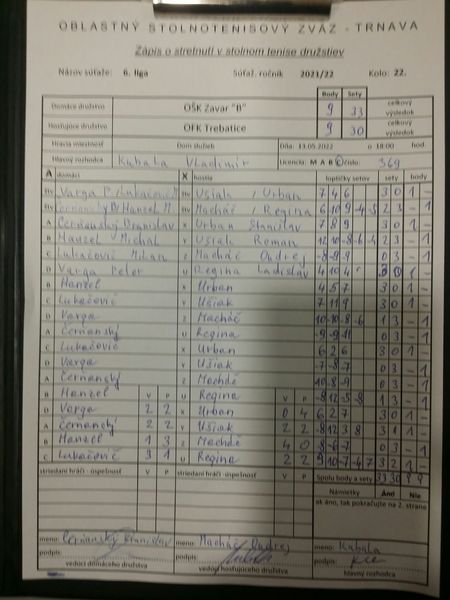 OBLASTNÝ STOLNOTENISOVÝ ZVÄZ - TRNAVA
Zápis o stretnutí v stolnom tenise družstiev
Názov súťaže: 6. liga Súťaž. ročník 2021/22 Kolo: 22.
Body Sety
Domáce družstvo OŠK Zavar "B" 9 33 celkový výsledok
Hosťujúce družstvo OFK Trebatice 9 30 celkový výsledok
Hracia miestnosť Dom služieb Dňa: 13.05.2022 o 18:00 hod.
Hlavný rozhodca Kabala Vladimír Licencia: M A B C číslo: 369
A domáci X hostia loptičky setov sety body
Varga P. Lukačovič Ušiak / Urban 7 4 6 3 0 1 -
Hanzel M. Macháč / Regina 6 10 9 -4 -5 2 3 - 1
A Černanský Branislav X Urban Stanislav 7 8 9 3 0 1 -
B Hanzel Michal Y Ušiak Roman 2 3 - 1
C Lukačovič Milan Z Macháč Ondrej 0 3 - 1
D Varga Peter U Regina Ladislav
B Hanzel X Urban 4 5 7 3 0 1 -
C Lukačovič Y Ušiak 7 11 9 3 0 1 -
D Varga Z Macháč 1 3 - 1
A Černanský U Regina 0 3 - 1
C Lukačovič X Urban 6 2 6 3 0 1 -
D Varga Y Ušiak 0 3 - 1
A Černanský Z Macháč 0 3 - 1
B Hanzel V P U Regina V P 1 3 - 1
D Varga 2 2 X Urban 0 4 6 2 7 3 0 1 -
A Černanský 2 2 Y Ušiak 2 2 3 1 1 -
B Hanzel 1 3 Z Macháč 4 0 -8 -6 -7 0 3 - 1
C Lukačovič 3 1 U Regina 2 2 3 2 1 -
striedaní hráči - úspešnosť V P striedaní hráči - úspešnosť V P Spolu body a sety 33 30 9 9
Námietky Áno Nie
ak áno, tak pokračujte na 2. strane
meno: Černanský Branislav meno: Macháč Ondrej meno: Kabala
podpis: podpis: podpis:
vedúci domáceho družstva vedúci hosťujúceho družstva hlavný rozhodca